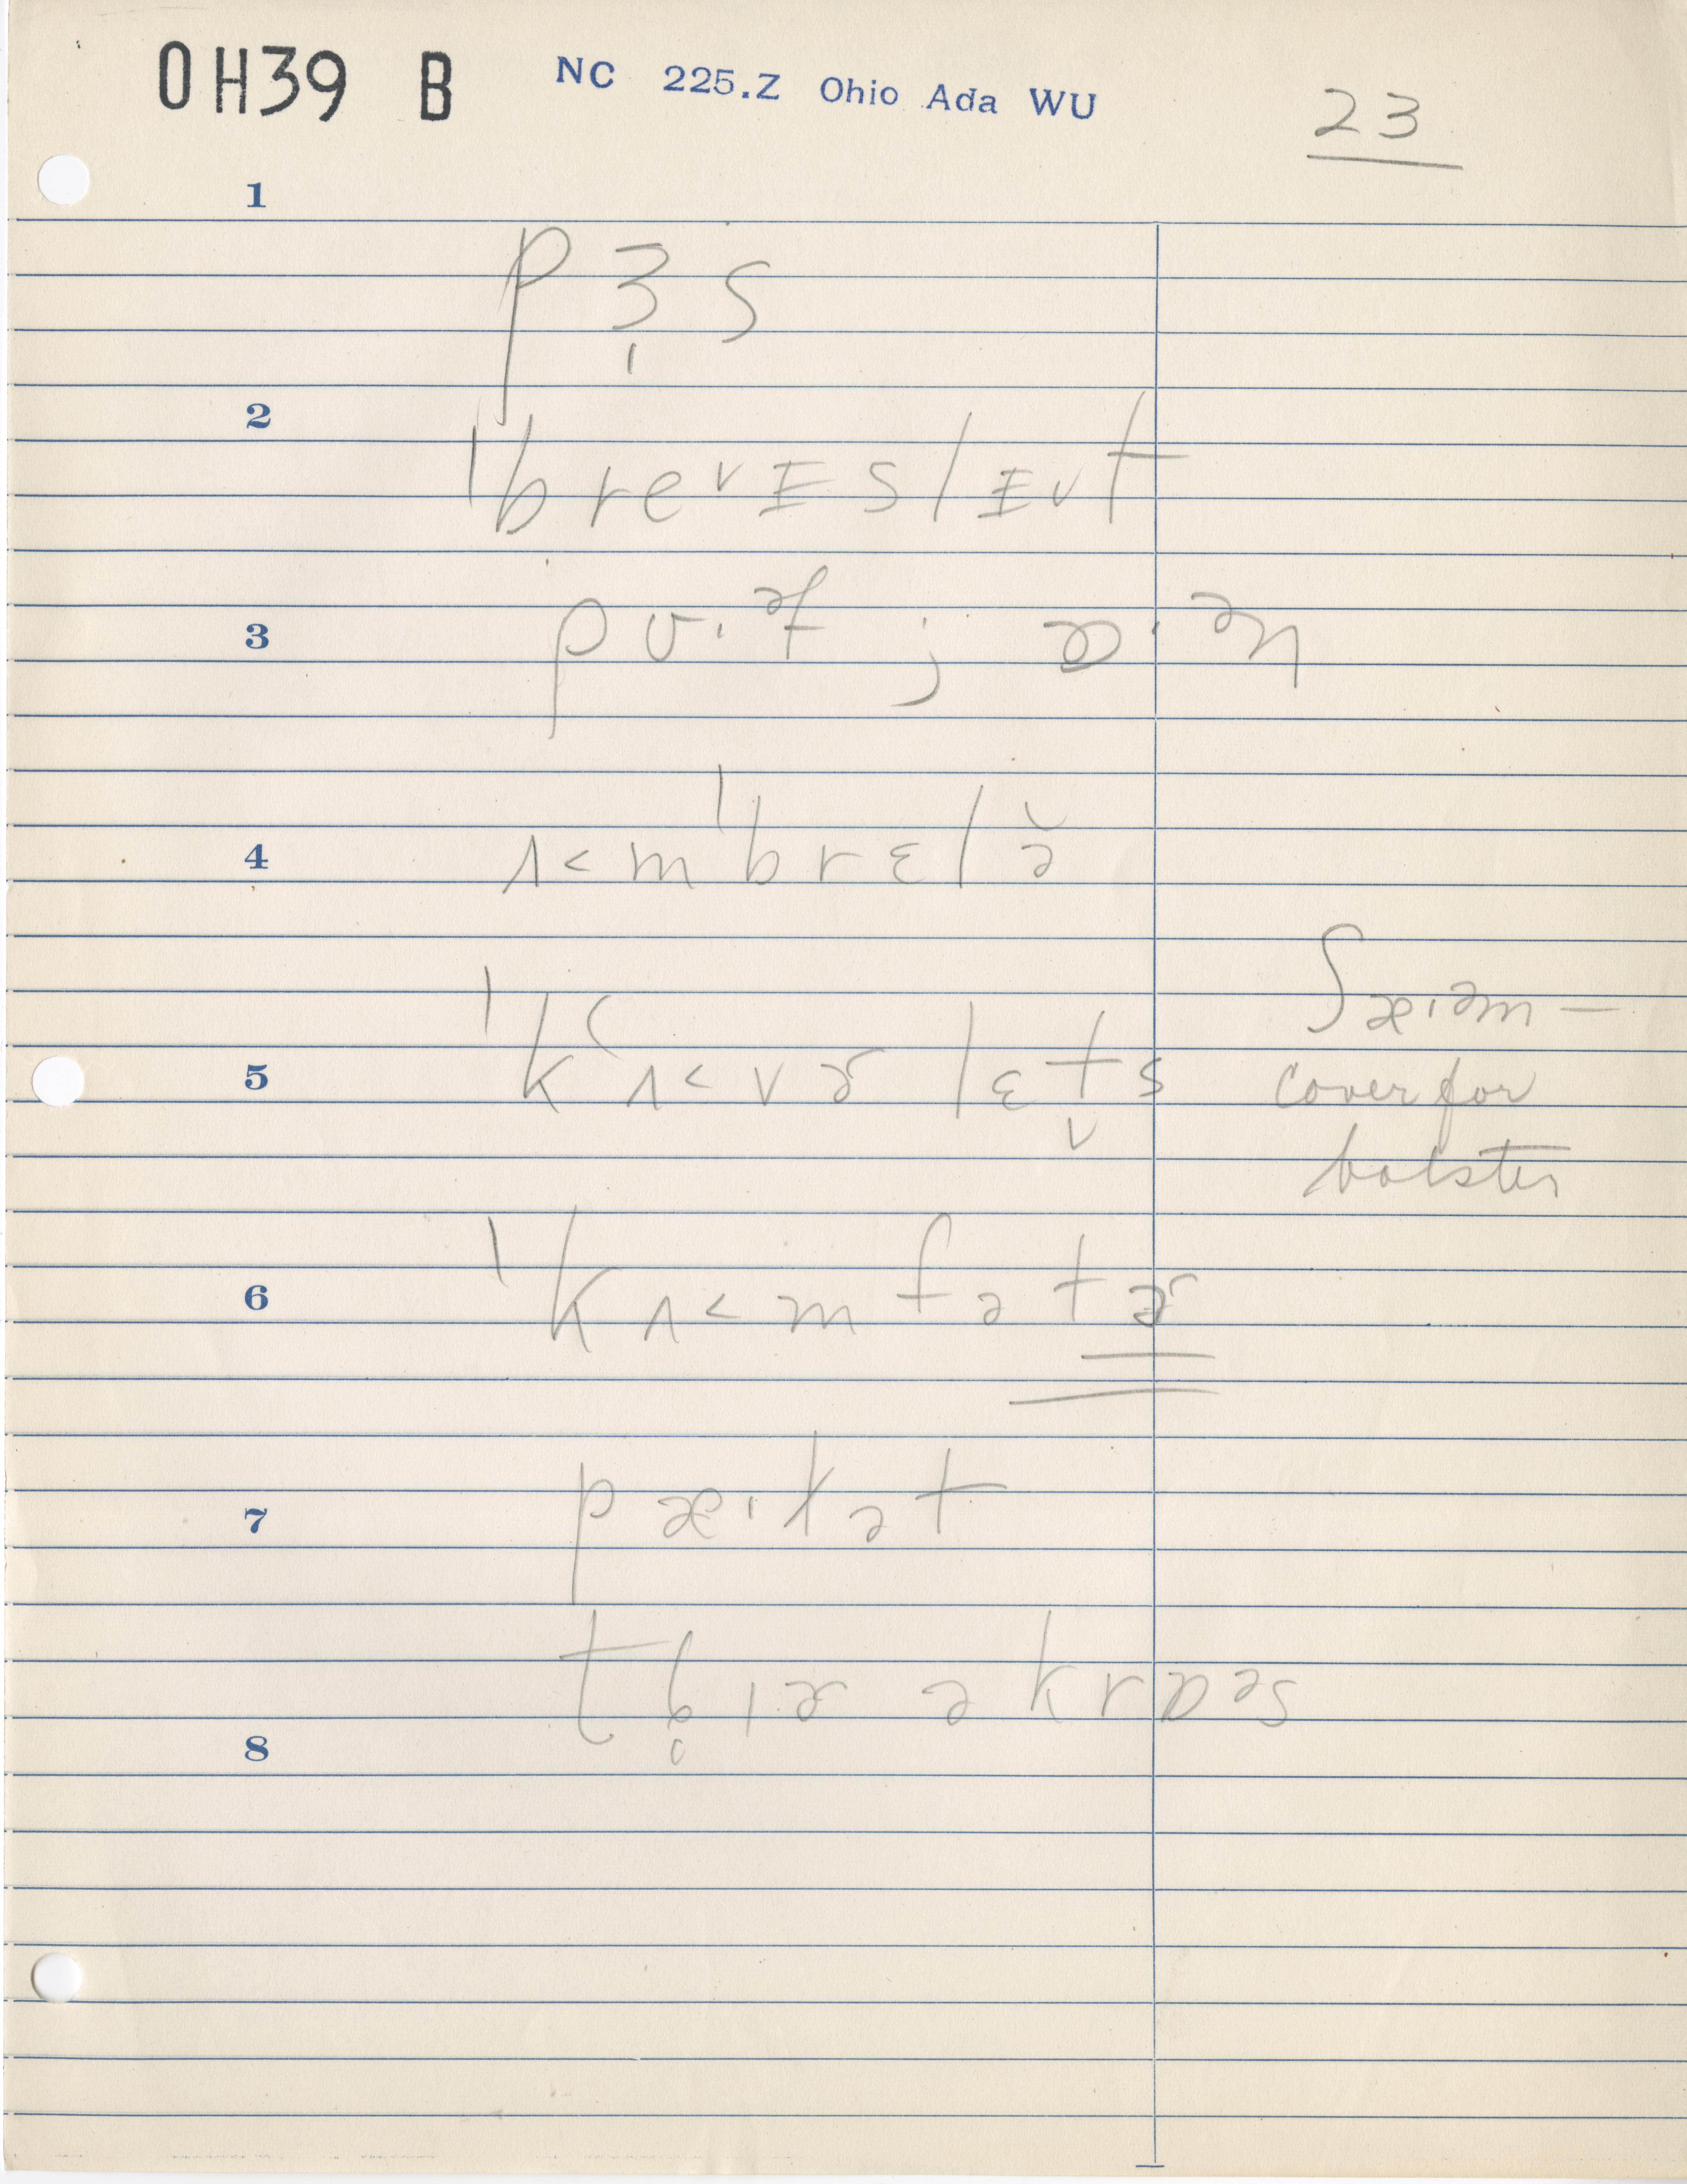 OH39 B NC 225.Z Ohio Ada WU 23
1
pɜ̩s
2
ˈbrevɪslɪvt
3
pʊ·ᵊt ; ɒ·ᵊn
4
ʌ˂mˈbrɛlə̆
5
ˈkʌ˂vɚlɛt̬s
ʃæ·əm —
cover for
bolster
6
ˈkʌ˂mfətɚ
7
pæ·kət
8
tb̥ɪɚ əkrɒᵊs